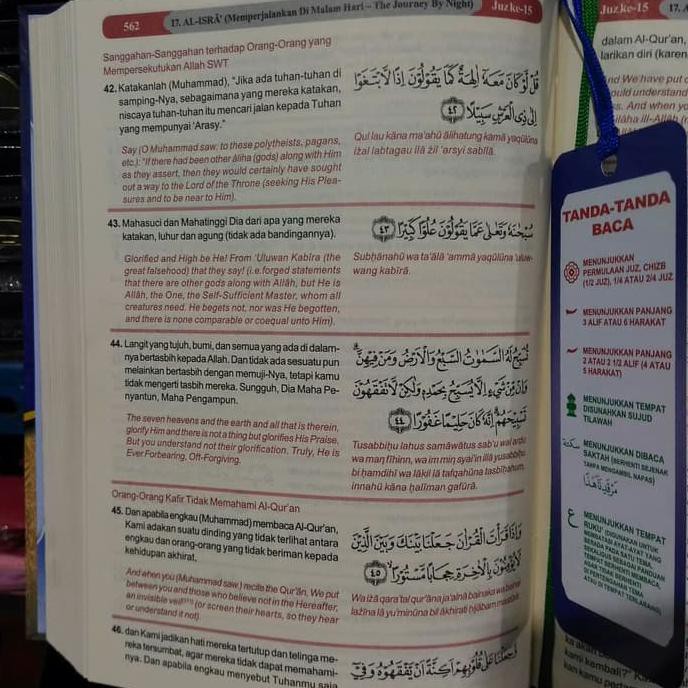 562
17. AL-ISRÂ' (Memperjalankan Di Malam Hari – The Journey By Night)
Juz ke-15
Sanggahan-Sanggahan terhadap Orang-Orang yang
Mempersekutukan Allah SWT
42. Katakanlah (Muhammad), "Jika ada tuhan-tuhan di
samping-Nya, sebagaimana yang mereka katakan,
niscaya tuhan-tuhan itu mencari jalan kepada Tuhan
yang mempunyai 'Arasy."
Say (O Muhammad saw. to these polytheists, pagans,
etc.): "If there had been other âliha (gods) along with Him
as they assert, then they would certainly have sought
out a way to the Lord of the Throne (seeking His Plea-
sures and to be near to Him).
قُلْ لَّوْ كَانَ مَعَهٗٓ اٰلِهَةٌ كَمَا يَقُوْلُوْنَ اِذًا لَّابْتَغَوْا
اِلٰى ذِى الْعَرْشِ سَبِيْلًا ٤٢
Qul lau kâna ma'ahû âlihatung kamâ yaqûlûna
iżal labtagau ilâ żil 'arsyi sabîlâ.
43. Mahasuci dan Mahatinggi Dia dari apa yang mereka
katakan, luhur dan agung (tidak ada bandingannya).
Glorified and High be He! From 'Uluwan Kabîra (the
great falsehood) that they say! (i.e. forged statements
that there are other gods along with Allâh, but He is
Allâh, the One, the Self-Sufficient Master, whom all
creatures need. He begets not, nor was He begotten,
and there is none comparable or coequal unto Him).
سُبْحٰنَهٗ وَتَعٰلٰى عَمَّا يَقُوْلُوْنَ عُلُوًّا كَبِيْرًا ٤٣
Subḥânahû wa ta'âlâ 'ammâ yaqûlûna 'uluw-
wang kabîrâ.
44. Langit yang tujuh, bumi, dan semua yang ada di dalam-
nya bertasbih kepada Allah. Dan tidak ada sesuatu pun
melainkan bertasbih dengan memuji-Nya, tetapi kamu
tidak mengerti tasbih mereka. Sungguh, Dia Maha Pe-
nyantun, Maha Pengampun.
The seven heavens and the earth and all that is therein,
glorify Him and there is not a thing but glorifies His Praise.
But you understand not their glorification. Truly, He is
Ever Forbearing, Oft-Forgiving.
تُسَبِّحُ لَهُ السَّمٰوٰتُ السَّبْعُ وَالْاَرْضُ وَمَنْ فِيْهِنَّ
وَاِنْ مِّنْ شَيْءٍ اِلَّا يُسَبِّحُ بِحَمْدِهٖ وَلٰكِنْ لَّا تَفْقَهُوْنَ
تَسْبِيْحَهُمْ اِنَّهٗ كَانَ حَلِيْمًا غَفُوْرًا ٤٤
Tusabbiḥu lahus samâwâtus sab'u wal arḍu
wa maη fîhinn, wa im miη syai'in illâ yusabbiḥu
bi ḥamdihî wa lâkil lâ tafqahûna tasbîḥahum,
innahû kâna ḥalîman gafûrâ.
Orang-Orang Kafir Tidak Memahami Al-Qur'an
45. Dan apabila engkau (Muhammad) membaca Al-Qur'an,
Kami adakan suatu dinding yang tidak terlihat antara
engkau dan orang-orang yang tidak beriman kepada
kehidupan akhirat,
And when you (Muhammad saw.) recite the Qur'ân, We put
between you and those who believe not in the Hereafter,
an invisible veil (or screen their hearts, so they hear
or understand it not).
وَاِذَا قَرَأْتَ الْقُرْاٰنَ جَعَلْنَا بَيْنَكَ وَبَيْنَ الَّذِيْنَ
لَا يُؤْمِنُوْنَ بِالْاٰخِرَةِ حِجَابًا مَّسْتُوْرًا ٤٥
Wa iżâ qara'tal qur'âna ja'alnâ bainaka wa bainal
lażîna lâ yu'minûna bil âkhirati ḥijâbam mastûrâ.
46. dan Kami jadikan hati mereka tertutup dan telinga me-
reka tersumbat, agar mereka tidak dapat memahami-
nya. Dan apabila engkau menyebut Tuhanmu saja
وَّجَعَلْنَا عَلٰى قُلُوْبِهِمْ اَكِنَّةً اَنْ يَّفْقَهُوْهُ وَفِيْٓ
Juz ke-15
17. A
dalam Al-Qur'an,
larikan diri (karen
And We have put
should understand
And when yo
ilâha ill-Allâh
TANDA-TANDA
BACA
MENUNJUKKAN
PERMULAAN JUZ, CHIZB
(1/2 JUZ), 1/4 ATAU 2/4 JUZ
MENUNJUKKAN PANJANG
3 ALIF ATAU 6 HARAKAT
MENUNJUKKAN PANJANG
2 ATAU 2 1/2 ALIF (4 ATAU
5 HARAKAT)
MENUNJUKKAN TEMPAT
DISUNAHKAN SUJUD
TILAWAH
سكتة
MENUNJUKKAN DIBACA
SAKTAH (BERHENTI SEJENAK
TANPA MENGAMBIL NAPAS)
مَرْقَدِنَا هٰذَا
ع
MENUNJUKKAN TEMPAT
RUKU' (DIGUNAKAN UNTUK
MEMBATASI AYAT-AYAT YANG
BERADA PADA SATU TEMA,
SEKALIGUS SEBAGAI PANDUAN
BERHENTI MEMBACA
AGAR TIDAK BERHENTI
DI PERTENGAHAN TEMA
ATAU DI TEMPAT TERLARANG)
kami kembali?" Ka
kan kamu perta